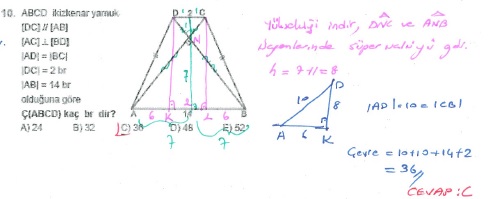 10. ABCD ikizkenar yamuk.
[DC] // [AB]
[AC] ⊥ [BD]
|AD| = |BC|
|DC| = 2 br
|AB| = 14 br
olduğuna göre
Ç(ABCD) kaç br dir?
A) 24 B) 32 C) 36 D) 48 E) 52
D 1 2 1 C
N
7
7
A 6 K 14 L 6 B
7 7
Yüksekliği indir, DNC ve ANB
üçgenlerinde süper üçlüyü gör.
h = 7+1 = 8
D
10 8
A 6 K
|AD| = 10 = |CB|
Çevre = 10+10+14+2
= 36
CEVAP: C